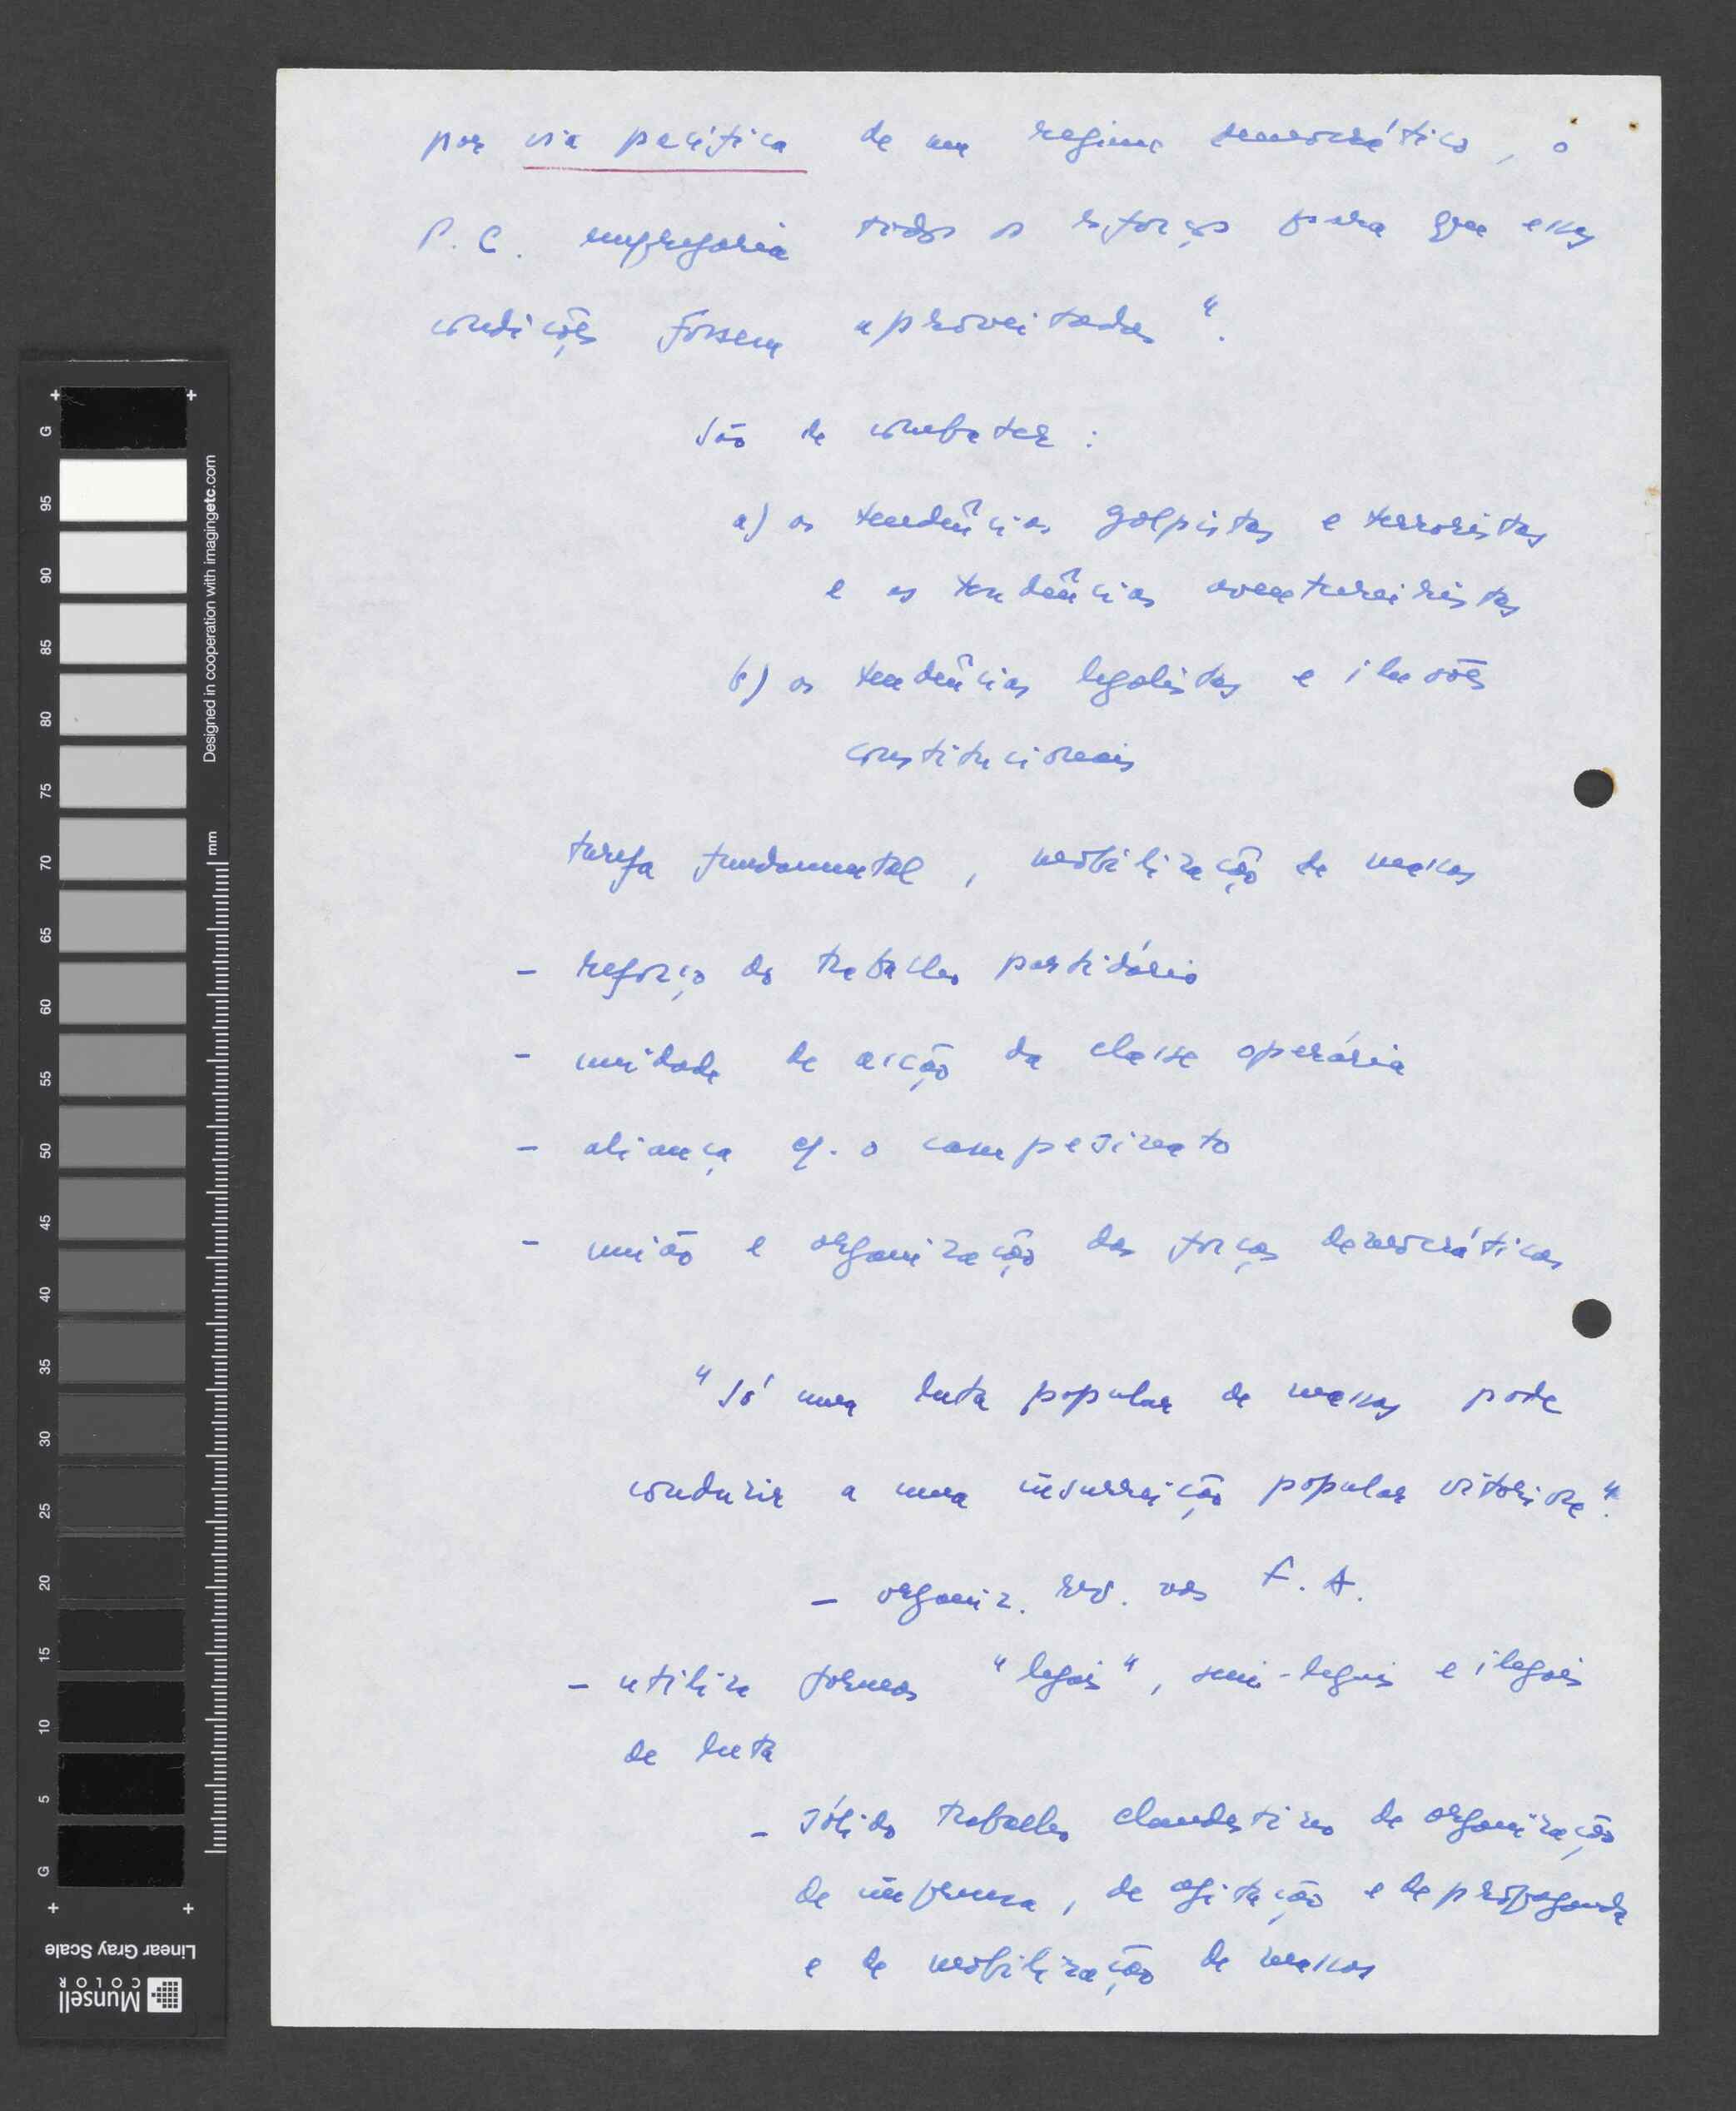 por via pacífica de um regime democrático, o
P.C. empregaria todos os esforços para que essas
condições fossem aproveitadas".
São de combater:
a) as tendências golpistas e terroristas
e as tendências aventureiristas
b) as tendências legalistas e ilusões
constitucionais
tarefa fundamental, mobilização de massas
- reforço do trabalho partidário
- unidade de acção da classe operária
- aliança c/. o campesinato
- união e organização das forças democráticas
"Só uma luta popular de massas pode
conduzir a uma insurreição popular vitoriosa".
- organiz. rev. nas F.A.
- utiliza formas "legais", semi-legais e ilegais
de luta
- sólido trabalho clandestino de organização
de imprensa, de agitação e de propaganda
e de mobilização de massas
G
95
90
85
80
75
70
65
60
55
50
45
40
35
30
25
20
15
10
5
G
Designed in cooperation with imagingetc.com
mm
Linear Gray Scale
Munsell
COLOR